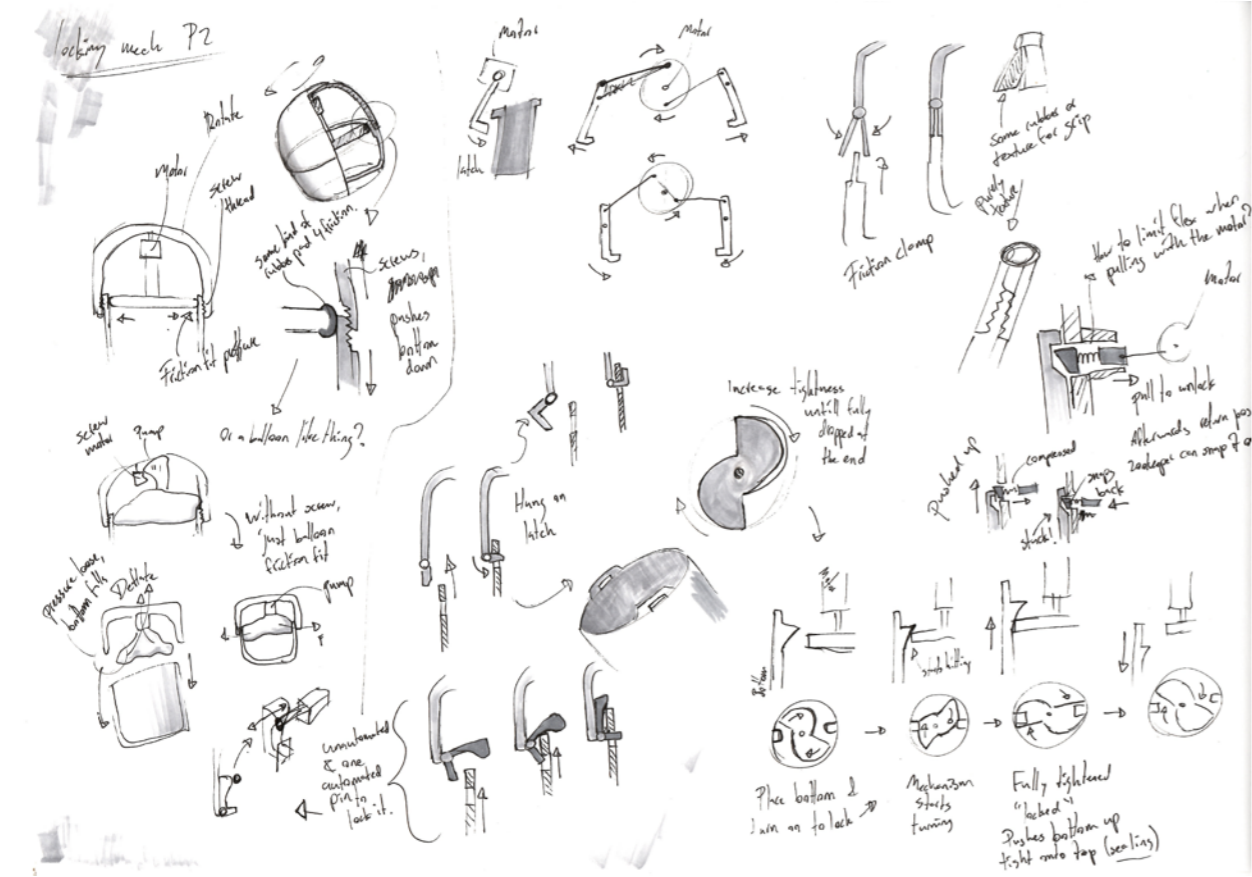 locking mech P2
Rotate
Motor
screw
thread
some kind of
rubber pad 4 friction.
screws,
pushes
bottom
down
Friction fit pressure
Or a balloon like thing?
screw
motor
Pump
Without screw,
just balloon
friction fit
pressure loose,
bottom falls
Deflate
pump
unautomated
& one
automated
pin to
lock it.
Motor
latch
Motor
Hung on
latch
Friction clamp
some rubber or
texture for grip
Purely
texture
How to limit flex when
pulling with the motor?
Motor
pull to unlock
Afterwards return pos
can snap
Pushed up
compressed
snaps
back
stuck!
Increase tightness
untill fully
dropped at
the end
Bottom
starts hitting
Place bottom &
turn on to lock
Mechanism
starts
turning
Fully tightened
"locked"
Pushes bottom up
tight into top (sealing)